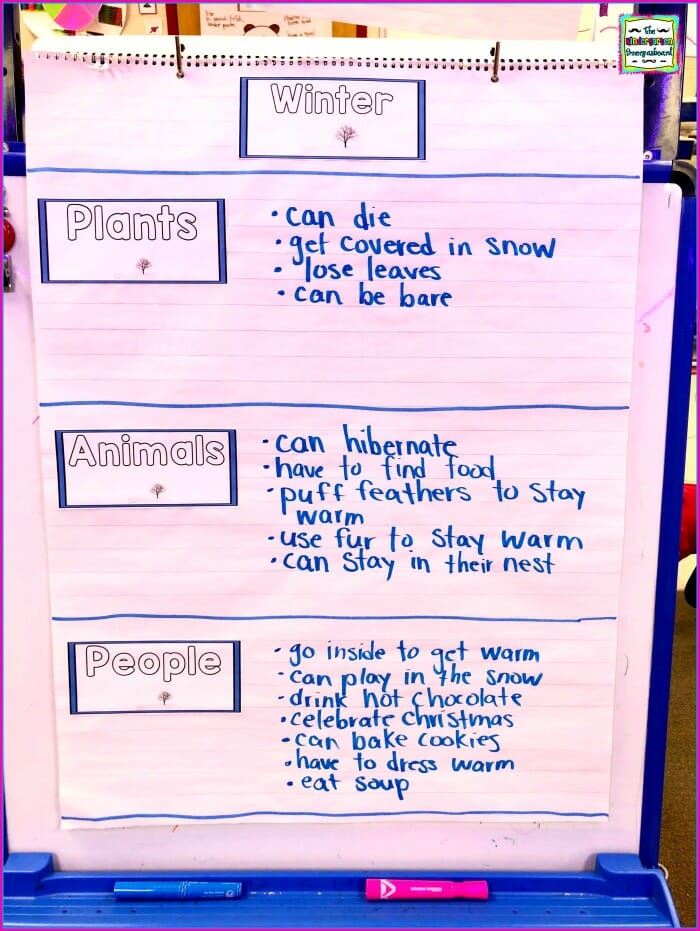 The
Kindergarten
Smorgasboard
Winter
Plants
• can die
• get covered in snow
• lose leaves
• can be bare
Animals
• can hibernate
• have to find food
• puff feathers to stay
warm
• use fur to stay warm
• can stay in their nest
People
• go inside to get warm
• can play in the snow
• drink hot chocolate
• celebrate christmas
• can bake cookies
• have to dress warm
• eat soup